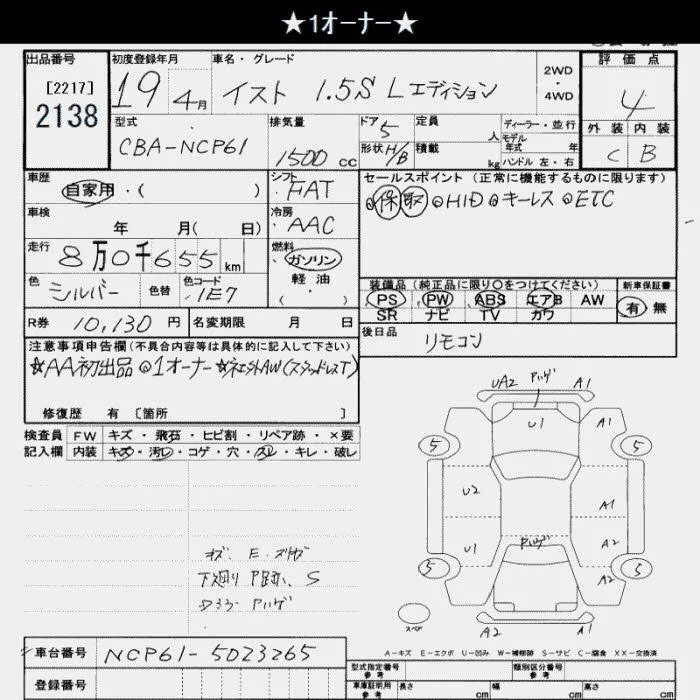 ★1オーナー★
出品番号 初度登録年月 車名・グレード 評価点
[2217]
2138
19 4月 イスト 1.5S Lエディション 2WD・4WD 4
型式 排気量 ドア 定員 ディーラー・並行 外装 内装
CBA-NCP61 1500cc 5 人 モデル年式 年 C B
形状 H/B 積載 kg ハンドル 左・右
車歴 シフト セールスポイント (正常に機能するものに限ります)
自家用・( ) FAT
保 取 ◎HID ◎キーレス ◎ETC
車検 年 月( 日) 冷房 AAC
走行 8万0千655km 燃料 ガソリン 軽油 ( ・ )
色 シルバー 色替 色コード 1E7
装備品 (純正品に限り○をつけてください) 新車保証書
PS PW ABS エアB AW 有 無
SR ナビ TV カワ
R券 10,130円 名変期限 月 日
後日品 リモコン
注意事項申告欄(不具合内容等は具体的に記入して下さい)
☆AA初出品 ◎1オーナー ☆ネエガイAW(スタッドレスT)
修復歴 有 [箇所 ]
検査員 FW キズ・飛石・ヒビ割・リペア跡・×要
記入欄 内装 キズ・汚レ・コゲ・穴・スレ・キレ・破レ
UA2 ハゲ A1
U1 A1
5 5
U2 A1
U1 Pハゲ A2
5 A2 5
スペア A2 A2
下廻り P S
Pハゲ
A-キズ E-エクボ U-凹み W-補修跡 S-サビ C-腐食 XX-交換済
車台番号 NCP61-5023265
登録番号
型式指定番号 参考 類別区分番号 参考
車庫証明用 参考 長さ cm 幅 cm 高さ cm